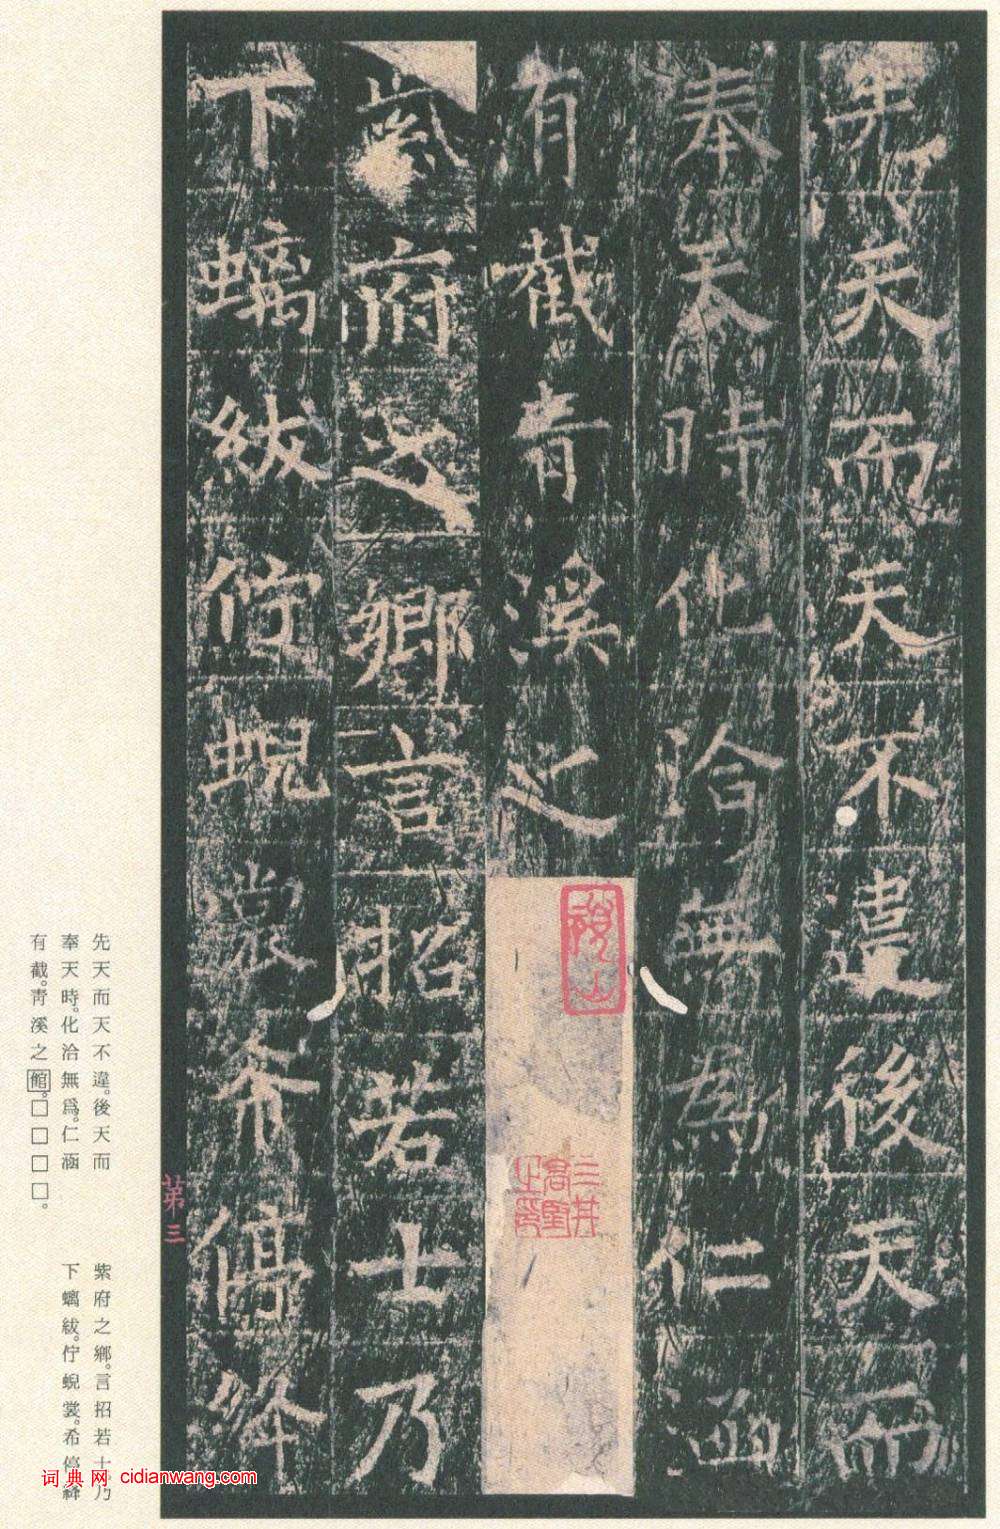 先天而天不違後天而
奉天時化洽無為仁涵
有截青溪之
紫府之鄉言招若士乃
下螭紱佇蜺裳希停絳
第三
先天而天不違。後天而
奉天時。化洽無爲。仁涵
有截。靑溪之館。□□□□。
紫府之鄉。言招若士。乃
下螭紱。佇蜺裳。希停絳
词典网 cidianwang.com